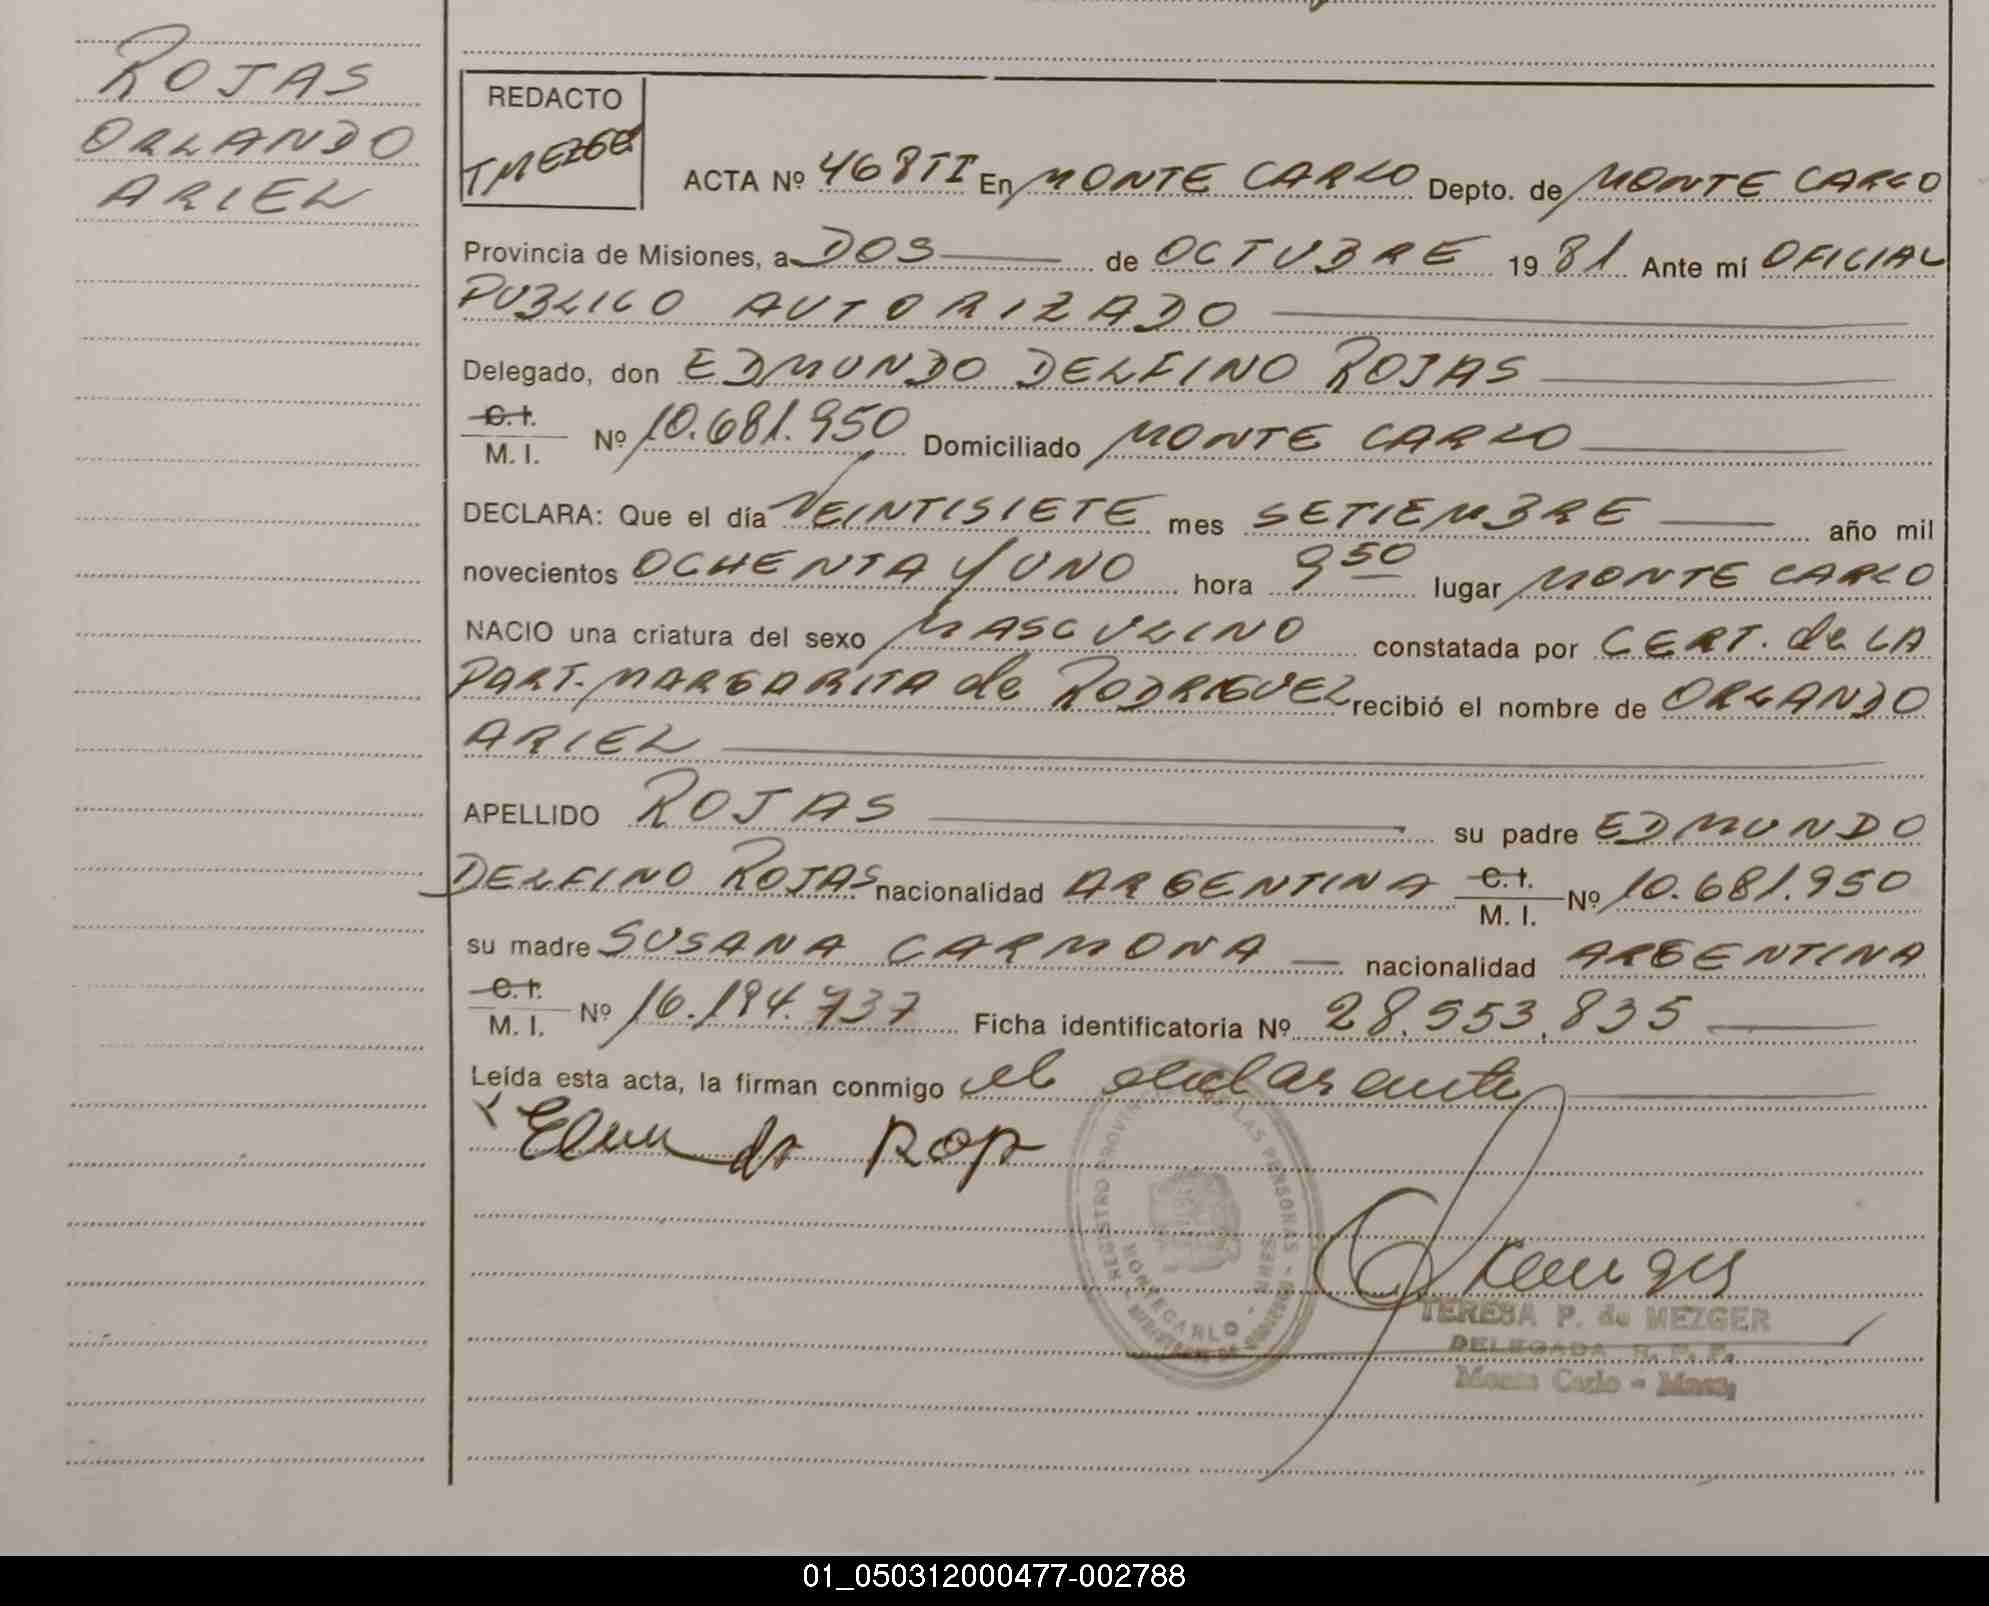 ROJAS
ORLANDO
ARIEL
REDACTO
TMEZGER
ACTA Nº 468 TI En MONTE CARLO Depto. de MONTE CARLO
Provincia de Misiones, a DOS de OCTUBRE 1981 Ante mí OFICIAL
PUBLICO AUTORIZADO
Delegado, don EDMUNDO DELFINO ROJAS
C.I.
M. I. Nº 10.681.950 Domiciliado MONTE CARLO
DECLARA: Que el día VEINTISIETE mes SETIEMBRE año mil
novecientos OCHENTA Y UNO hora 9 50 lugar MONTE CARLO
NACIO una criatura del sexo MASCULINO constatada por CERT. de LA
PART. MARGARITA de RODRIGUEZ recibió el nombre de ORLANDO
ARIEL
APELLIDO ROJAS su padre EDMUNDO
DELFINO ROJAS nacionalidad ARGENTINA C.I. M. I. Nº 10.681.950
su madre SUSANA CARMONA nacionalidad ARGENTINA
C.I.
M. I. Nº 16.194.737 Ficha identificatoria Nº 28.553.835
Leída esta acta, la firman conmigo el declarante
REGISTRO PROVINCIAL DE LAS PERSONAS - MISIONES
MONTECARLO
TERESA P. de MEZGER
DELEGADA R. P. P.
Monte Carlo - Mnes,
01_050312000477-002788